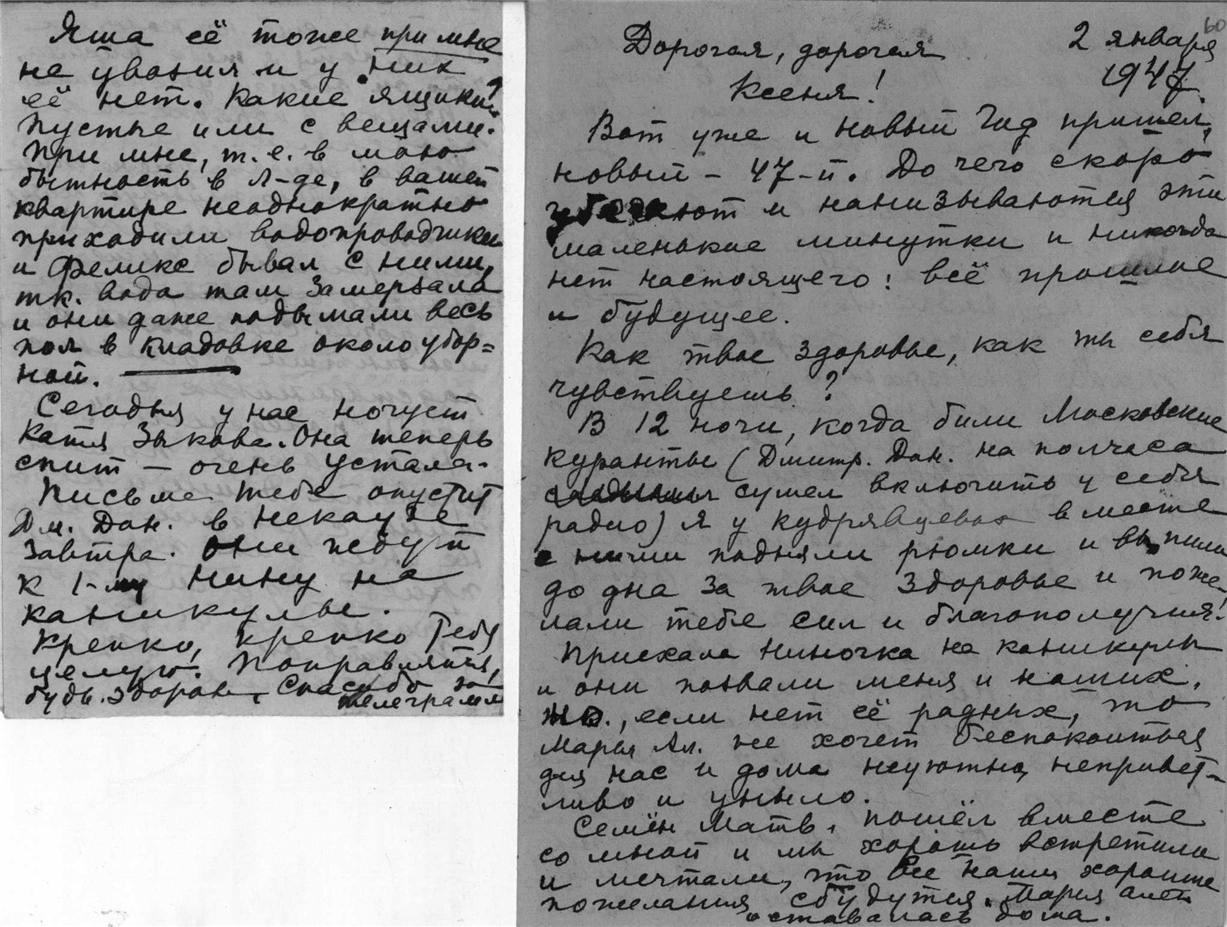 Яша её тоже при мне
не увозил и у них
её нет. Какие ящики?
Пустые или с вещами.
При мне, т.е. в мою
бытность в Л-де, в вашей
квартире неоднократно
приходили водопроводчики
и Феликс бывал с ними,
тк. вода там замерзала
и они даже подымали весь
пол в кладовке около убор=
ной.
Сегодня у нас ночует
Катя Зыкова. Она теперь
спит — очень устала.
Письмо тебе опустит
Дм. Дан. в Некоузе
завтра. Они
к 1-му Нину на
каникулы.
Крепко, крепко тебя
целую. Поправляйся,
будь здорова. Спасибо за
телеграмму
60
2 января
1947.
Дорогая, дорогая
Ксеня!
Вот уже и новый Год пришел,
новый - 47-й. До чего скоро
и нанизываются эти
маленькие минутки и никогда
нет настоящего: всё прошлое
и будущее.
Как твое здоровье, как ты себя
чувствуешь?
В 12 ночи, когда били Московские
куранты (Дмитр. Дан. на полчаса
сумел включить у себя
радио) я у Кудрявцевых вместе
с ними подняли рюмки и выпили
до дна за твое здоровье и поже
лали тебе сил и благополучия!
Приехала Ниночка на каникулы
и они позвали меня и наших,
но, если нет её родных, то
Марья Ал. не хочет беспокоиться
для нас и дома неуютно, непривет-
ливо и уныло.
Семён Матв. пошёл вместе
со мной и мы хорошо встретили
и мечтали, что все наши хорошие
пожелания сбудутся. Мария Алек
оставалась дома.